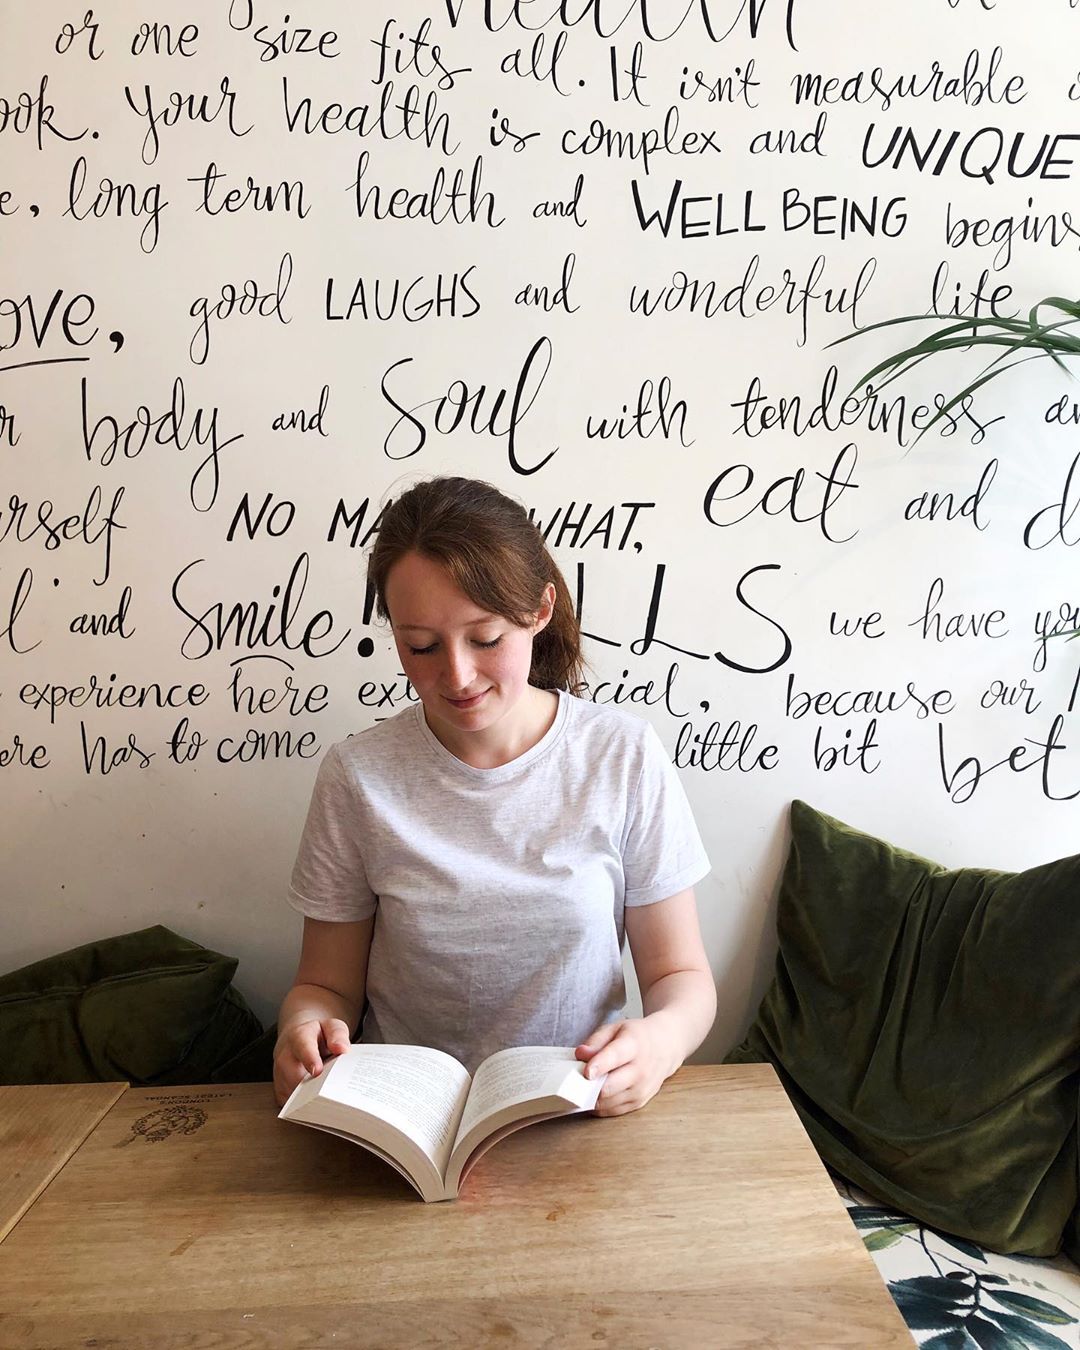 health
or one size fits all. It isn't measurable
Your health is complex and UNIQUE
long term health and WELLBEING begins
good LAUGHS and wonderful life
body and Soul with tenderness
NO WHAT, eat and
and Smile! LLS we have you
experience here because our
has to come little bit
LONDON'S
LATEST SCANDAL